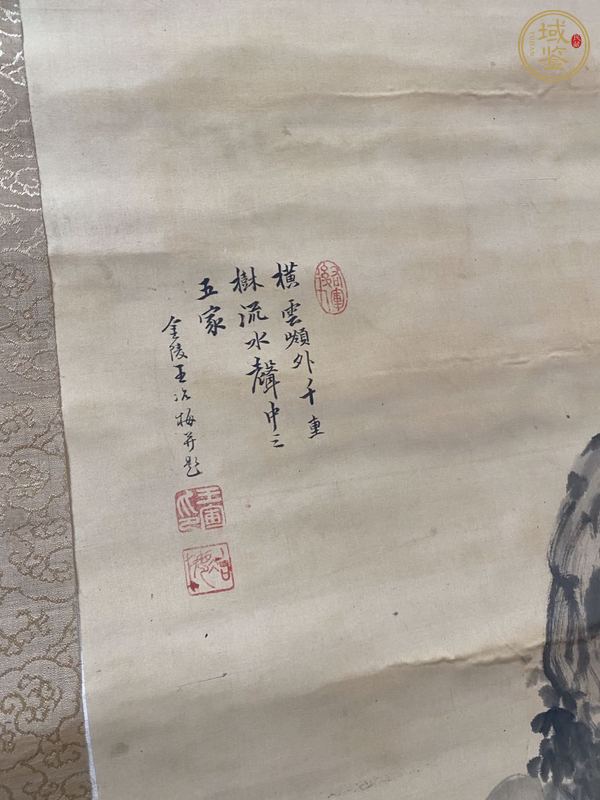 橫雲嶺外千重
樹流水聲中三
五家
金陵王次梅并題
域鉴